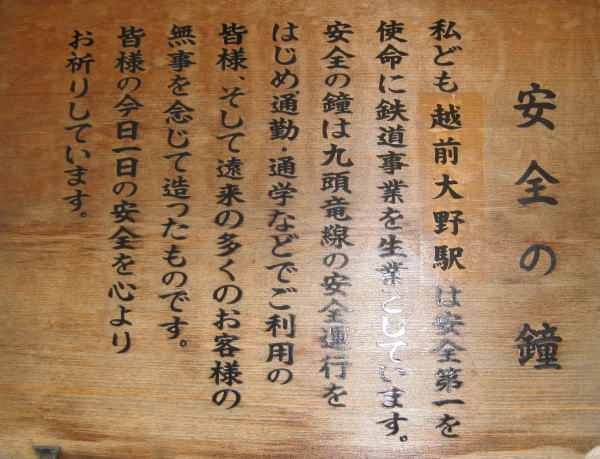 安全の鐘
私ども越前大野駅は安全第一を
使命に鉄道事業を生業としています。
安全の鐘は九頭竜線の安全運行を
はじめ、通勤・通学などでご利用の
皆様、そして遠来の多くのお客様の
無事を念じて造ったものです。
皆様の今日一日の安全を心より
お祈りしています。